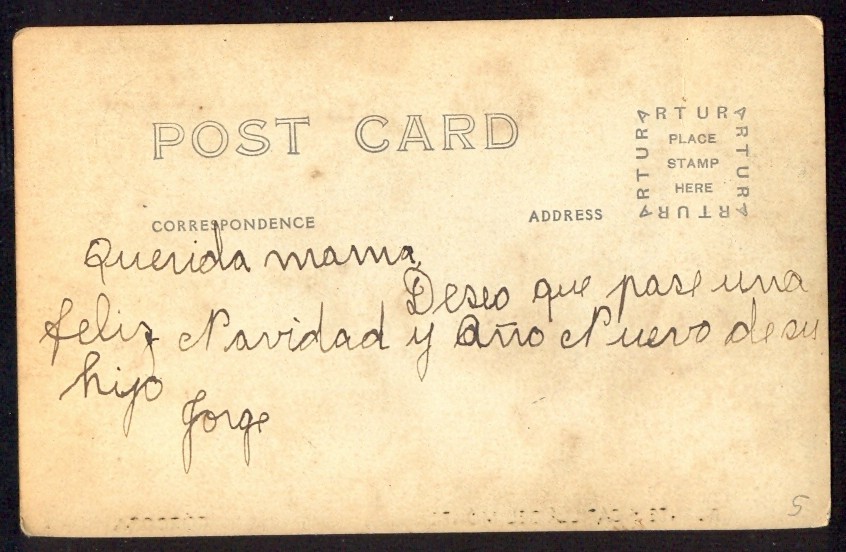 POST CARD
ARTURA
ARTURA
ARTURA
ARTURA
PLACE
STAMP
HERE
CORRESPONDENCE
ADDRESS
Querida mama,
Deseo que pase una
feliz Navidad y Año Nuevo de su
hijo
Jorge
5